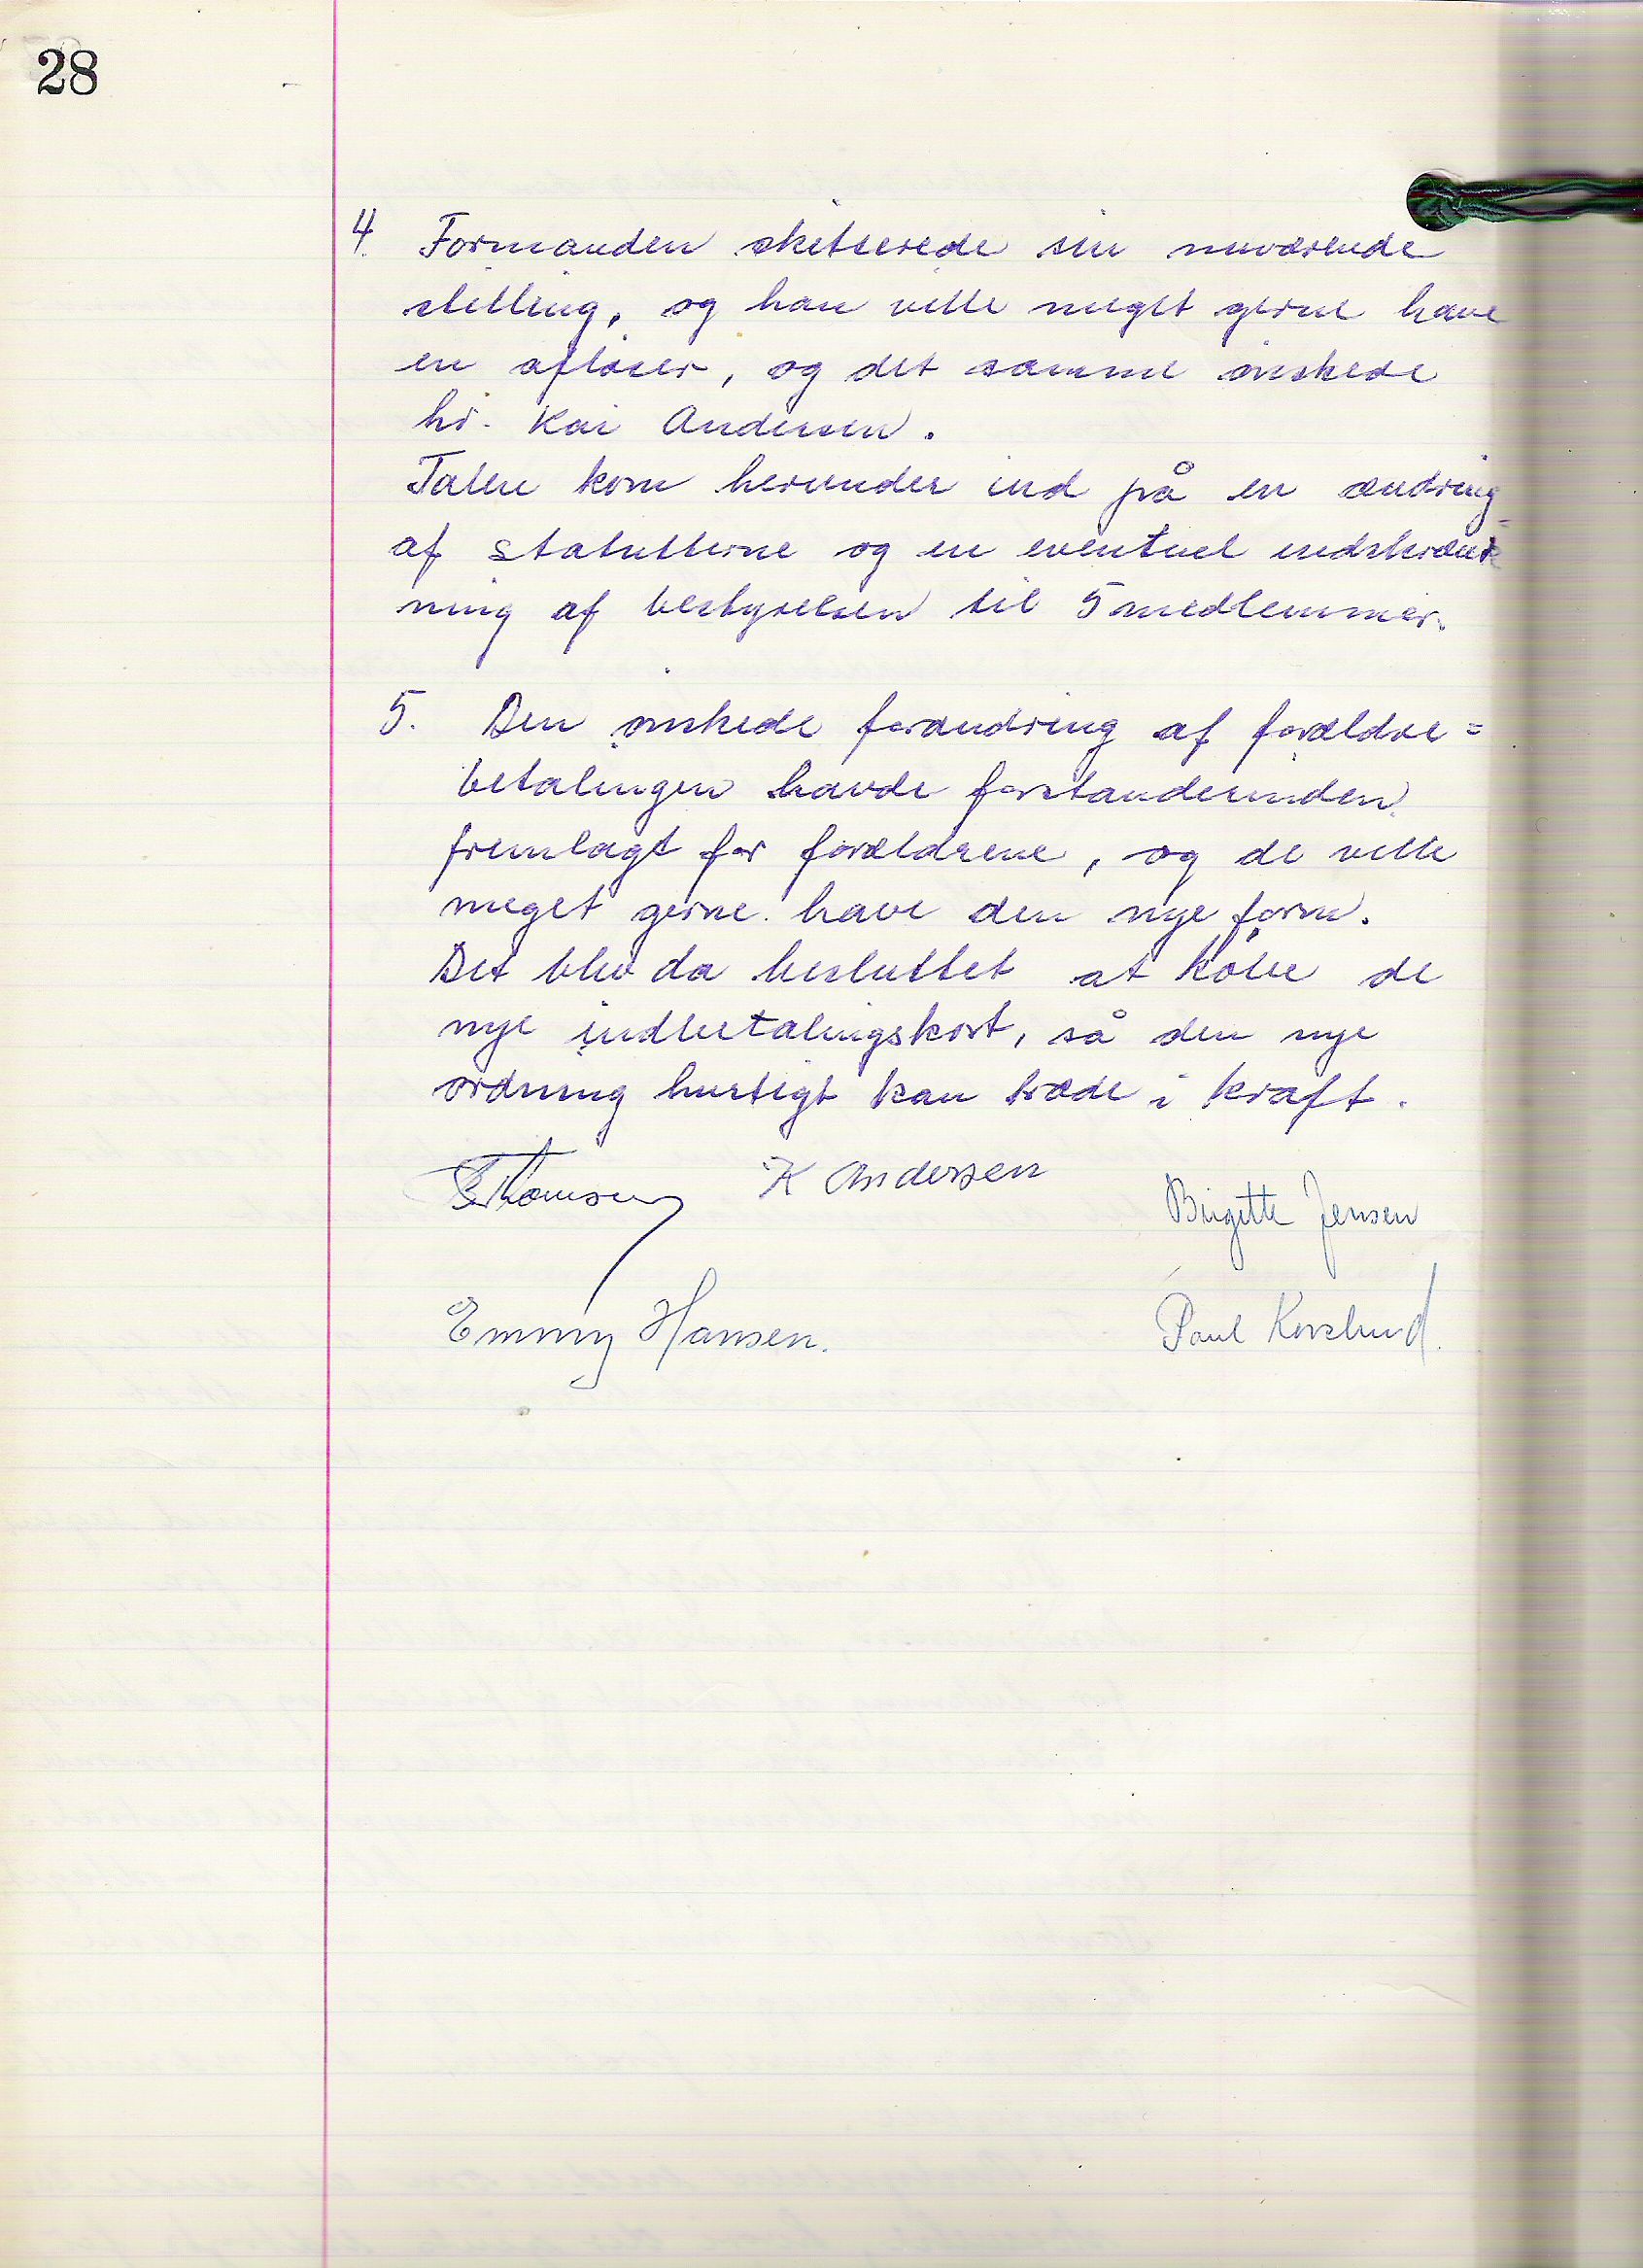 28
4. Formanden skitserede sin nuværende
stilling, og han ville meget gerne have
en afløser, og det samme ønskede
hr. Kai Andersen.
Talen kom herunder ind på en ændring
af statutterne og en eventuel indskrænk-
ning af bestyrelsen til 5 medlemmer.
5. Den ønskede forandring af forældre=
betalingen havde forstanderinden
fremlagt for forældrene, og de ville
meget gerne have den nye form.
Det blev da besluttet at købe de
nye indbetalingskort, så den nye
ordning hurtigt kan træde i kraft.
Thomsen K Andersen
Birgitte Jensen
Emmy Hansen.
Poul